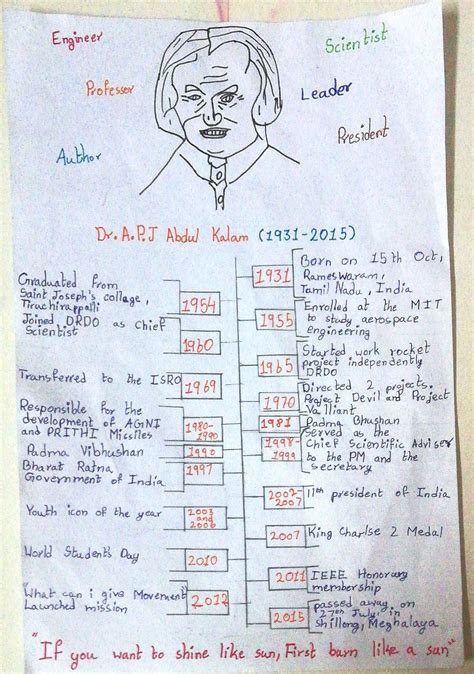 Engineer
Scientist
Professor
Leader
President
Author
Dr. A.P.J Abdul Kalam (1931-2015)
1931
Born on 15th Oct,
Rameswaram,
Tamil Nadu, India
Graduated from
Saint Joseph's collage,
Tiruchirappalli
1954
1955
Enrolled at the MIT
to study aerospace
engineering
Joined DRDO as Chief
Scientist
1960
1965
Started work rocket
project independently
DRDO
Transferred to the ISRO
1969
1970
Directed 2 projects.
Project Devil and Project
Vailliant
Responsible for the
development of AGNI
and PRITHI Missiles
1980-
1990
1981
Padma Bhushan
Padma Vibhushan
1990
1998-
1999
Served as the
Chief Scientific Adviser
to the PM and the
secretary
Bharat Ratna
Government of India
1997
2002-
2007
11th president of India
Youth icon of the year
2003
and
2006
2007
King Charlse 2 Medal
World Student's Day
2010
2011
IEEE Honorary
membership
"What can i give Movement"
Launched mission
2012
2015
passed away on
27th July in
Shillong, Meghalaya
"If you want to shine like sun, First burn like a sun"